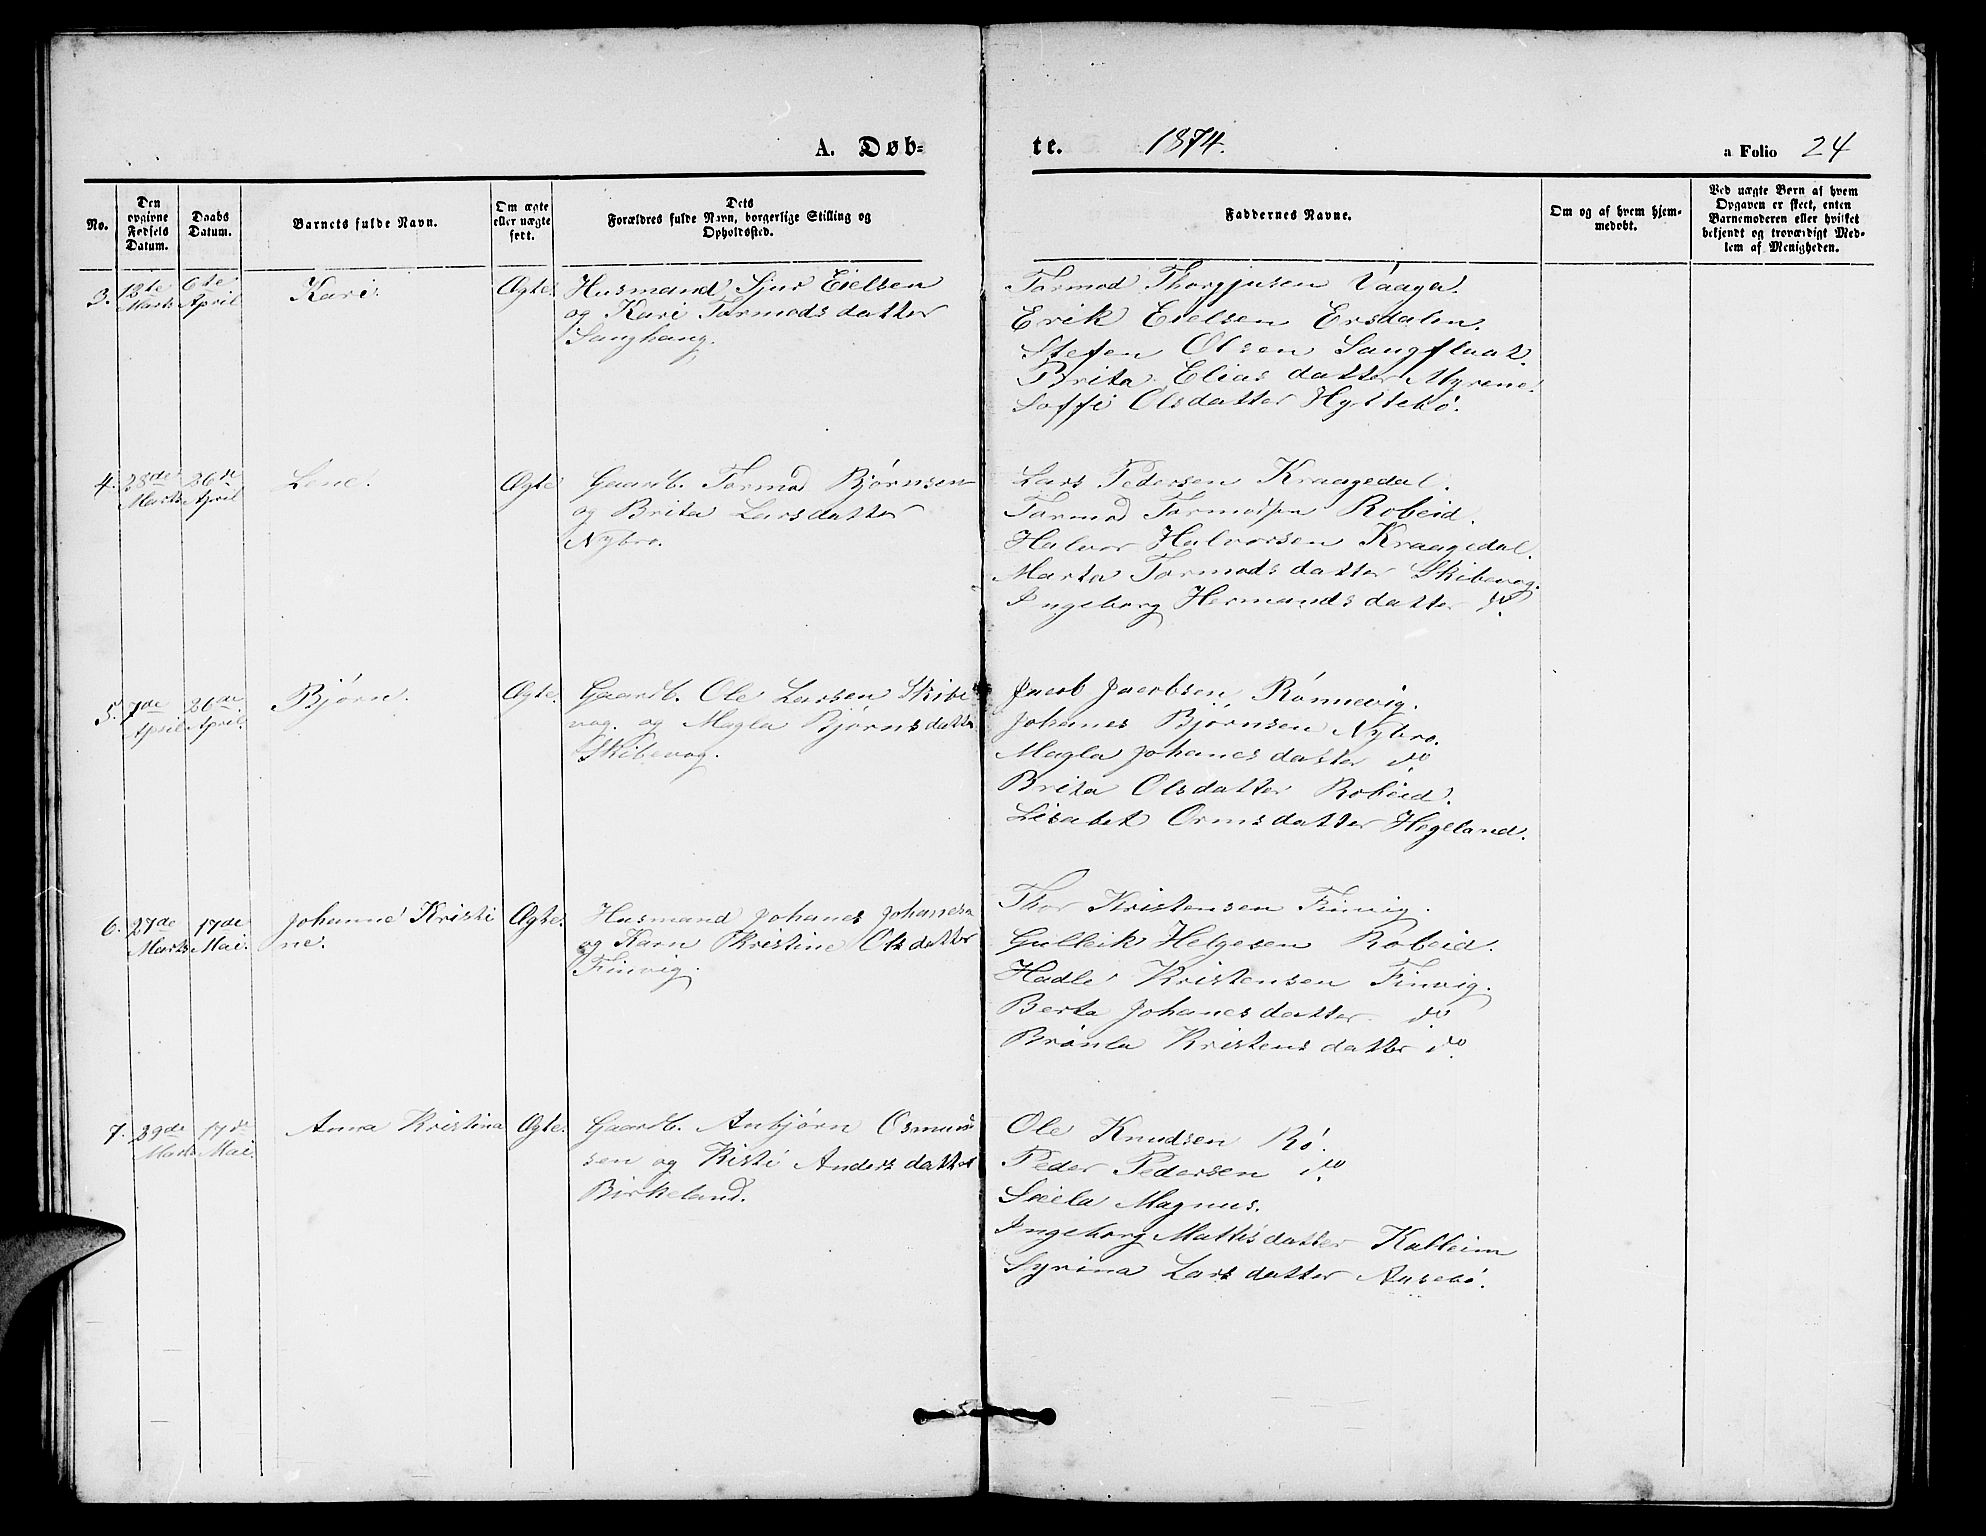 A. Døb-
te. 1874. a Folio 24
No.
Den opgivne Fødsels Datum.
Daabs Datum.
Barnets fulde Navn.
Om ægte eller uægte født.
Dets Forældres fulde Navn, borgerlige Stilling og Opholdssted.
Faddernes Navne.
Om og af hvem hjemmedøbt.
Ved uægte Børn af hvem Opgaven er skeet, enten Barnemoderen eller hvilket bekjendt og troværdigt Medlem af Menigheden.
3. 13te Marts 6te April Kari. Ægte. Husmand Sjur Eielsen
og Kari Tormodsdatter
Sanghaug.
Tormod Thorgjusen Vaaga.
Erik Eielsen Ersdalen.
Stefen Olsen Sangflaat.
Brita Eliasdatter Myrene.
Soffi Olsdatter Hyttebø.
4. 28de Marts 26de April Lene. Ægte Gaardb. Tormod Bjørnsen
og Brita Larsdatter
Nybro.
Lars Pedersen Kraagedal.
Tormod Tormodsen Robeid.
Halvor Halvorsen Kraagedal.
Marta Tormodsdatter Skibevog.
Ingeborg Hermandsdatter do.
5. 7de April 26de April. Bjørn. Ægte. Gaardb. Ole Larsen Skibe
vog. og Magla Bjørnsdatter
Skibevog.
Jacob Jacobsen Rønnevig.
Johanes Bjørnsen Nybro.
Magla Johanesdatter do
Brita Olsdatter Robeid.
Lisabet Ormsdatter Hegeland.
6. 27de Marts 17de Mai. Johanne Kristi
ne. Ægte. Husmand Johanes Johanesen
og Karn Kristine Olsdatter
Finvig.
Thor Kristensen Finvig.
Gulleik Helgesen Robeid.
Hadle Kristensen Finvig.
Berta Johanesdatter do.
Brønla Kristensdatter do.
7. 29de Marts 17de Mai. Anna Kristina Ægte. Gaardb. Anbjørn Osmund
sen og Kisti Andersdatter
Birkeland.
Ole Knudsen Rø.
Peder Pedersen do.
Seila Magnus.
Ingeborg Mattisdatter Kalleim
Syrina Larsdatter Aasebø.